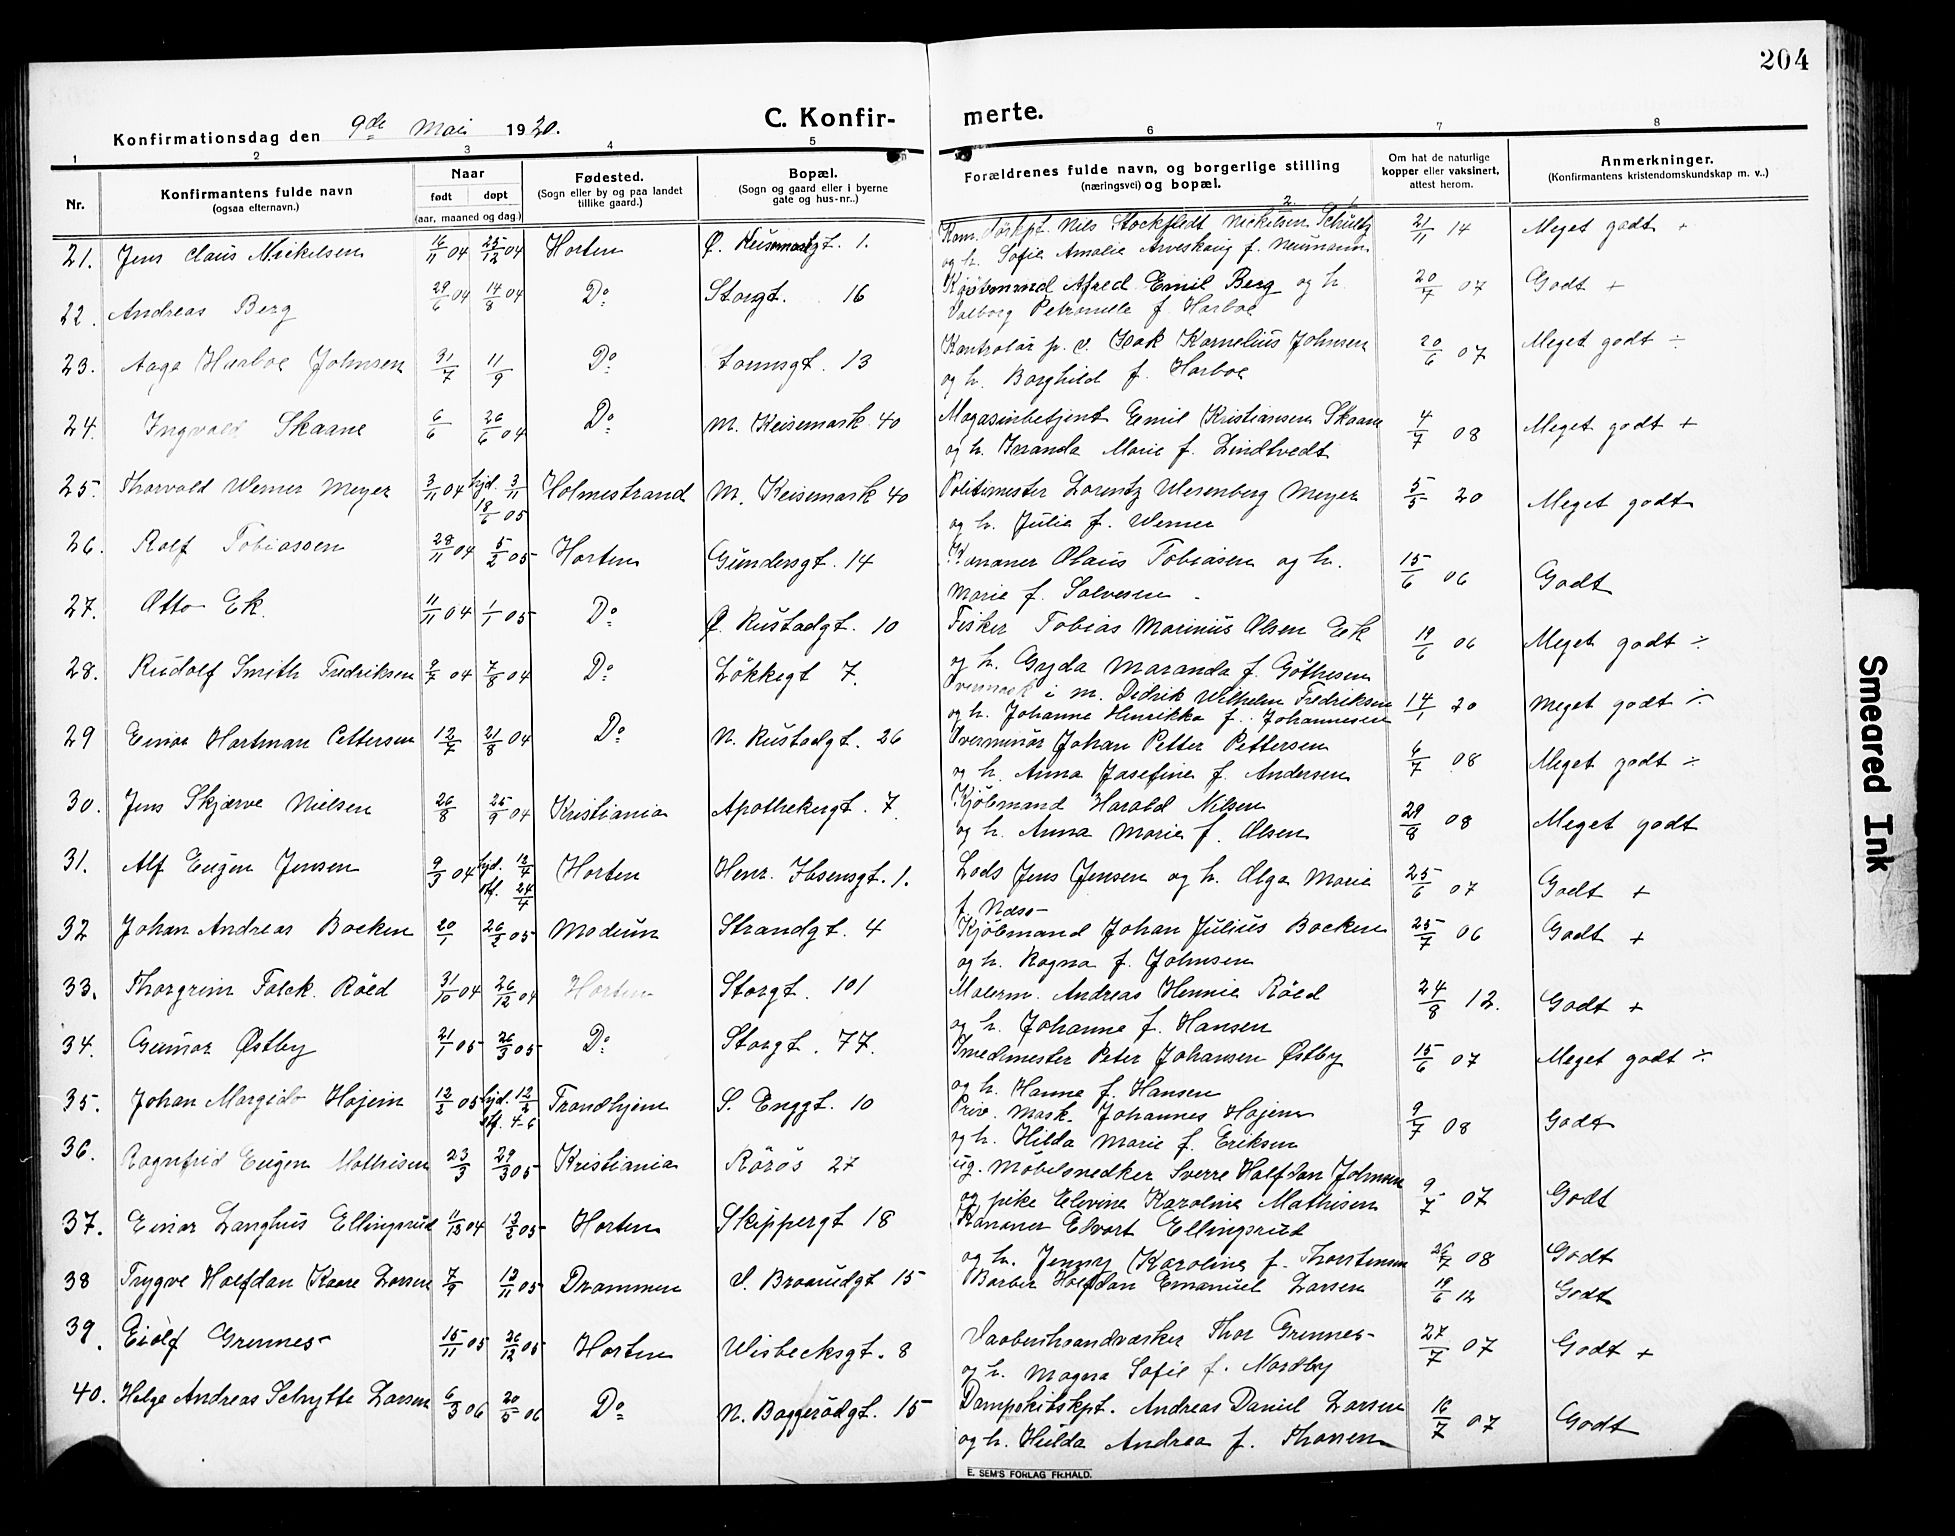 204
Konfirmationsdag den 9de Mai 1920.
C. Konfirmerte.
1 2 3 4 5 6 7 8
Nr.
Konfirmantens fulde navn
(ogsaa efternavn.)
Naar
født døpt
(aar, maaned og dag.)
Fødested.
(Sogn eller by og paa landet
tillike gaard.)
Bopæl.
(Sogn og gaard eller i byerne
gate og hus-nr..)
Forældrenes fulde navn, og borgerlige stilling
(næringsvei) og bopæl.
Om hat de naturlige
kopper eller vaksinert,
attest herom.
Anmerkninger.
(Konfirmantens kristendomskundskap m. v..)
21. Jens Claus Nickelsen 16/11 04 25/12 04 Horten Ø. Keisemarkgt. 1. Nils Stockfledt Nickelsen Schultz 21/11 14 Meget godt +
og h. Sofie Amalie f. Neumann
22. Andreas Berg 29/6 04 14/8 04 Do Storgt. 16 Kjöbmand Afred Emil Berg og h. 20/7 07 Godt +
Valborg Petronelle f. Harboe
23. Aage Harboe Johnsen 31/7 11/9 Do Tonnsgt. 13 Kontrolör p. v. Isak Kornelius Johnsen 20/6 07 Meget godt ÷
og h. Borghild f. Harboe
24. Ingvald Skaane 6/6 26/6 04 Do M. Keisemark 40 Magasinbetjent Emil Kristiansen Skaane 4/7 08 Meget godt +
og h. Inanda Marie f. Lindtvedt
25. Thorvald Werner Meyer 3/11 04 hjd. 3/11 18/6 05 Holmestrand M. Keisemark 40 Politimester Lorentz Wesenberg Meyer 5/5 20 Meget godt
og h. Julie f. Werner
26. Rolf Tobiassen 28/11 04 5/2 05 Horten Gundersgt. 14 Kanoner Olaus Tobiasen og h. 15/6 06 Godt
Marie f. Salvesen -
27. Otto Ek. 11/11 04 1/1 05 Do Ø. Rustadgt. 10 Fisker Tobias Marinius Olsen Ek 19/6 06 Meget godt ÷
og h. Gyda Maranda f. Göthesen
28. Rudolf Smith Fredriksen 9/7 04 7/8 04 Do Lökkegt 7. i M. Didrik Wilhelm Fredriksen 14/1 20 Meget godt ÷
og h. Johanne Henrikka f. Johannesen
29 Einar Hartman Pettersen 12/7 21/8 04 Do N. Rustadgt. 26 Overminör Johan Petter Pettersen 4/7 08 Meget godt ÷
og h. Anna Josefine f. Andersen
30. Jens Skjærve Nielsen 26/8 25/9 04 Kristiania Apothekergt. 7. Kjöbmand Harald Nilsen 29/8 08 Meget godt
og h. Anna Marie f. Olsen
31. Alf Eugen Jensen 9/3 04 hjd. 12/4 stf. 24/4 Horten Henr. Ibsensgt. 1. Lods Jens Jensen og h. Olga Marie 25/6 07 Godt +
f. Næss-
32 Johan Andreas Bocken 20/1 26/2 05 Modum Strandgt. 4 Kjöbmand Johan Julius Bocken 25/7 06 Godt +
og h. Ragna f. Johnsen
33. Thorgrim Falck Röed 31/10 04 26/12 04 Horten Storgt. 101 Malerm. Andreas Hennie Röed 24/8 12. Godt +
og h. Johanne f. Hansen
34. Gunnar Østby 21/1 05 26/3 05 Do Storgt. 77. Smedmester Peter Johansen Østby 15/6 07 Meget godt ÷
og h. Hanne f. Hansen
35. Johan Margido Hojem 12/2 05 hjd. 12/2 stf. 4-6 Trondhjem S. Enggt. 10 Prov. Mask. Johannes Hojem 9/7 08 Godt
og h. Hilda Marie f. Eriksen
36. Ragnfrid Eugen Mathisen 23/3 29/3 05 Kristiania Rörös 27 ug. Möbelsnedker Sverre Halfdan Johnsen 9/7 07 Godt
og pike Elevine Karoline Mathisen
37. Einar Langhus Ellingsrud 11/12 04 12/2 05 Horten Skippergt 18 Kanoner Edvart Ellingsrud
og h. Jenny Karoline f. Thorstensen 26/7 08 Godt
38 Trygve Halfdan Kaare Larsen 7/9 12/11 05 Drammen V. Braarudgt 15 Barber Halfdan Emanuel Larsen 19/6 12 Godt
39. Eiolf Grennes- 15/11 05 26/12 05 Horten Wisbecksgt. 8 Vaabenhaandværker Thor Grennes- 27/7 07 Godt +
og h. Magna Sofie f. Nordby
40. Helge Andreas Schytte Larsen 6/3 06 20/5 06 Do N. Baggerödgt. 15 Dampskibskpt. Andreas Daniel Larsen 16/7 07 Godt
og h. Hulda Andrea f. Thoresen
E. SEM'S FORLAG FR.HALD.
Smeared Ink